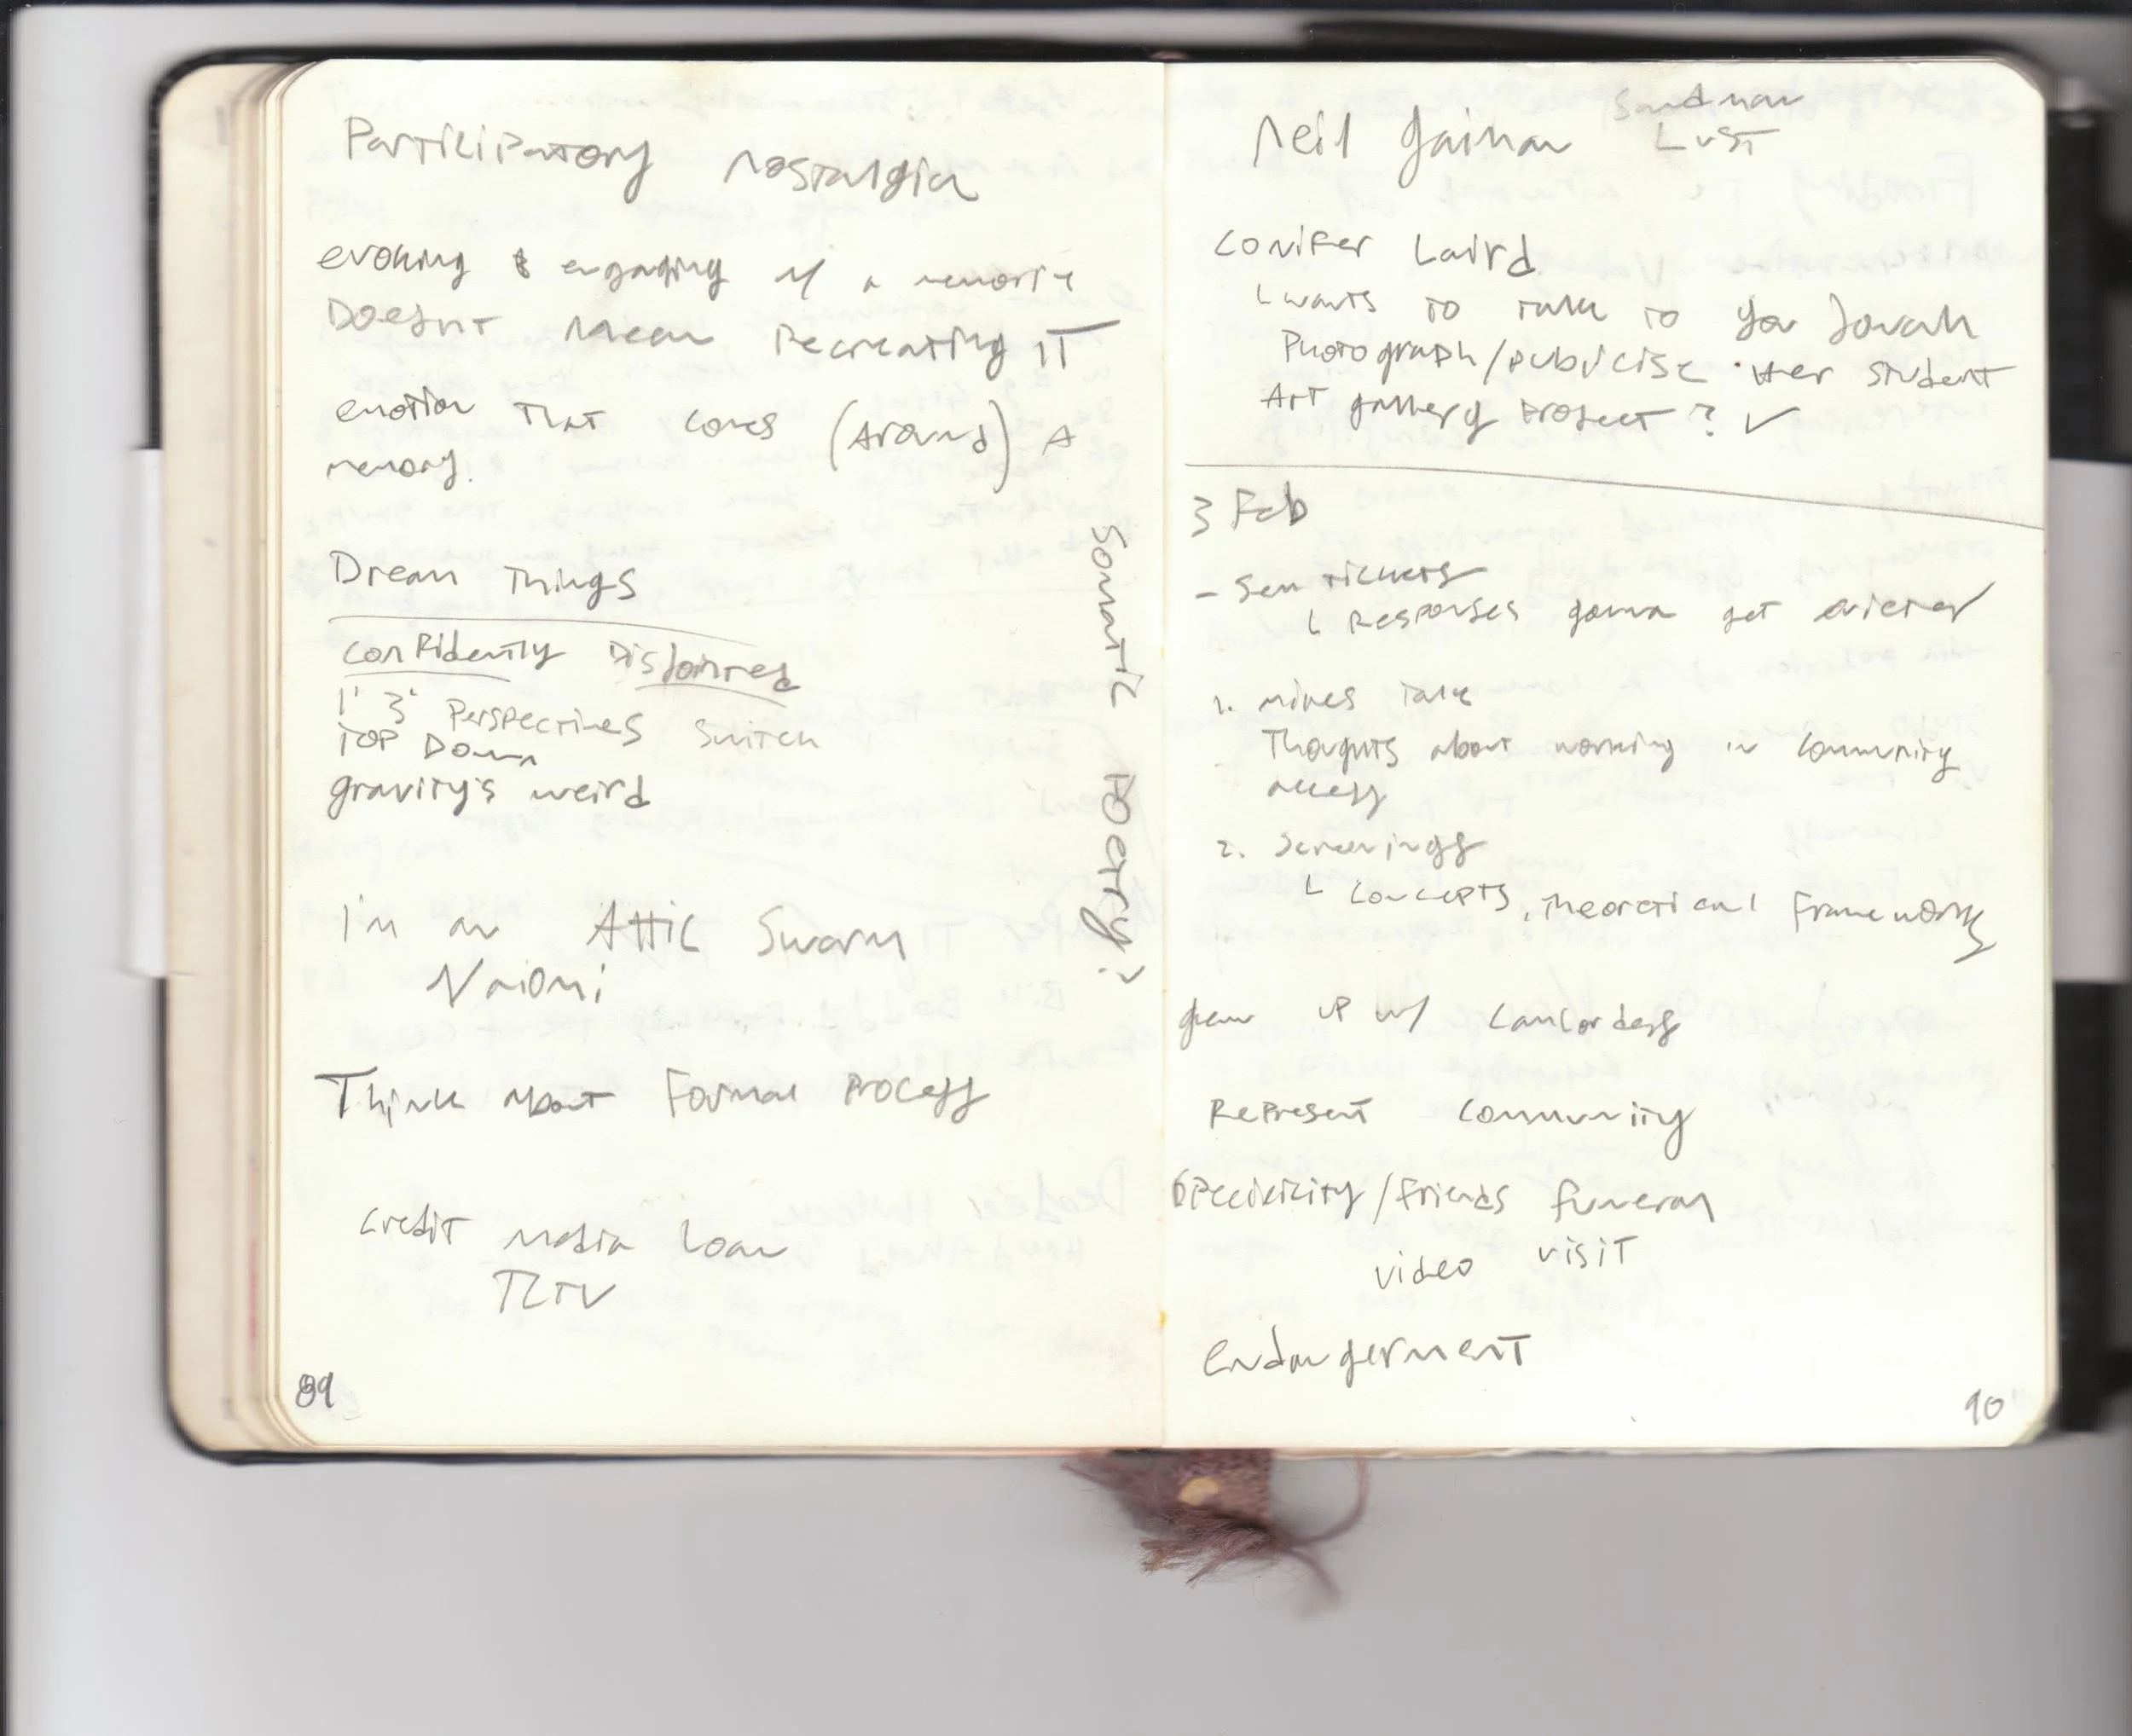 Participatory nostalgia
evoking & engaging of a memory
Doesnt Mean Recreating IT
emotion that comes (Around) A
memory.
Dream Things
Confidently Disjointed
1' 3' Perspectives Switch
Top Down
gravity's weird
I'm an Attic Swarm
Naiomi
Think About Formal Process
Credit Media Loan
TLTV
89
Somatic Poetry?
Neil Gaiman Sandman
Lust
Conifer Laird
└ wants to talk to you Jonah
Photograph/publicise Her student
Art gallery Project? ✓
3 Feb
- Sem Tickets
└ Responses gonna get
1. Mikes Talk
Thoughts about working in community
access
2. Screenings
└ Concepts, Theoretical Frameworks
grew up w/ Camcorders
Represent Community
Specificity/friends funeral
video visit
Endangerment
90